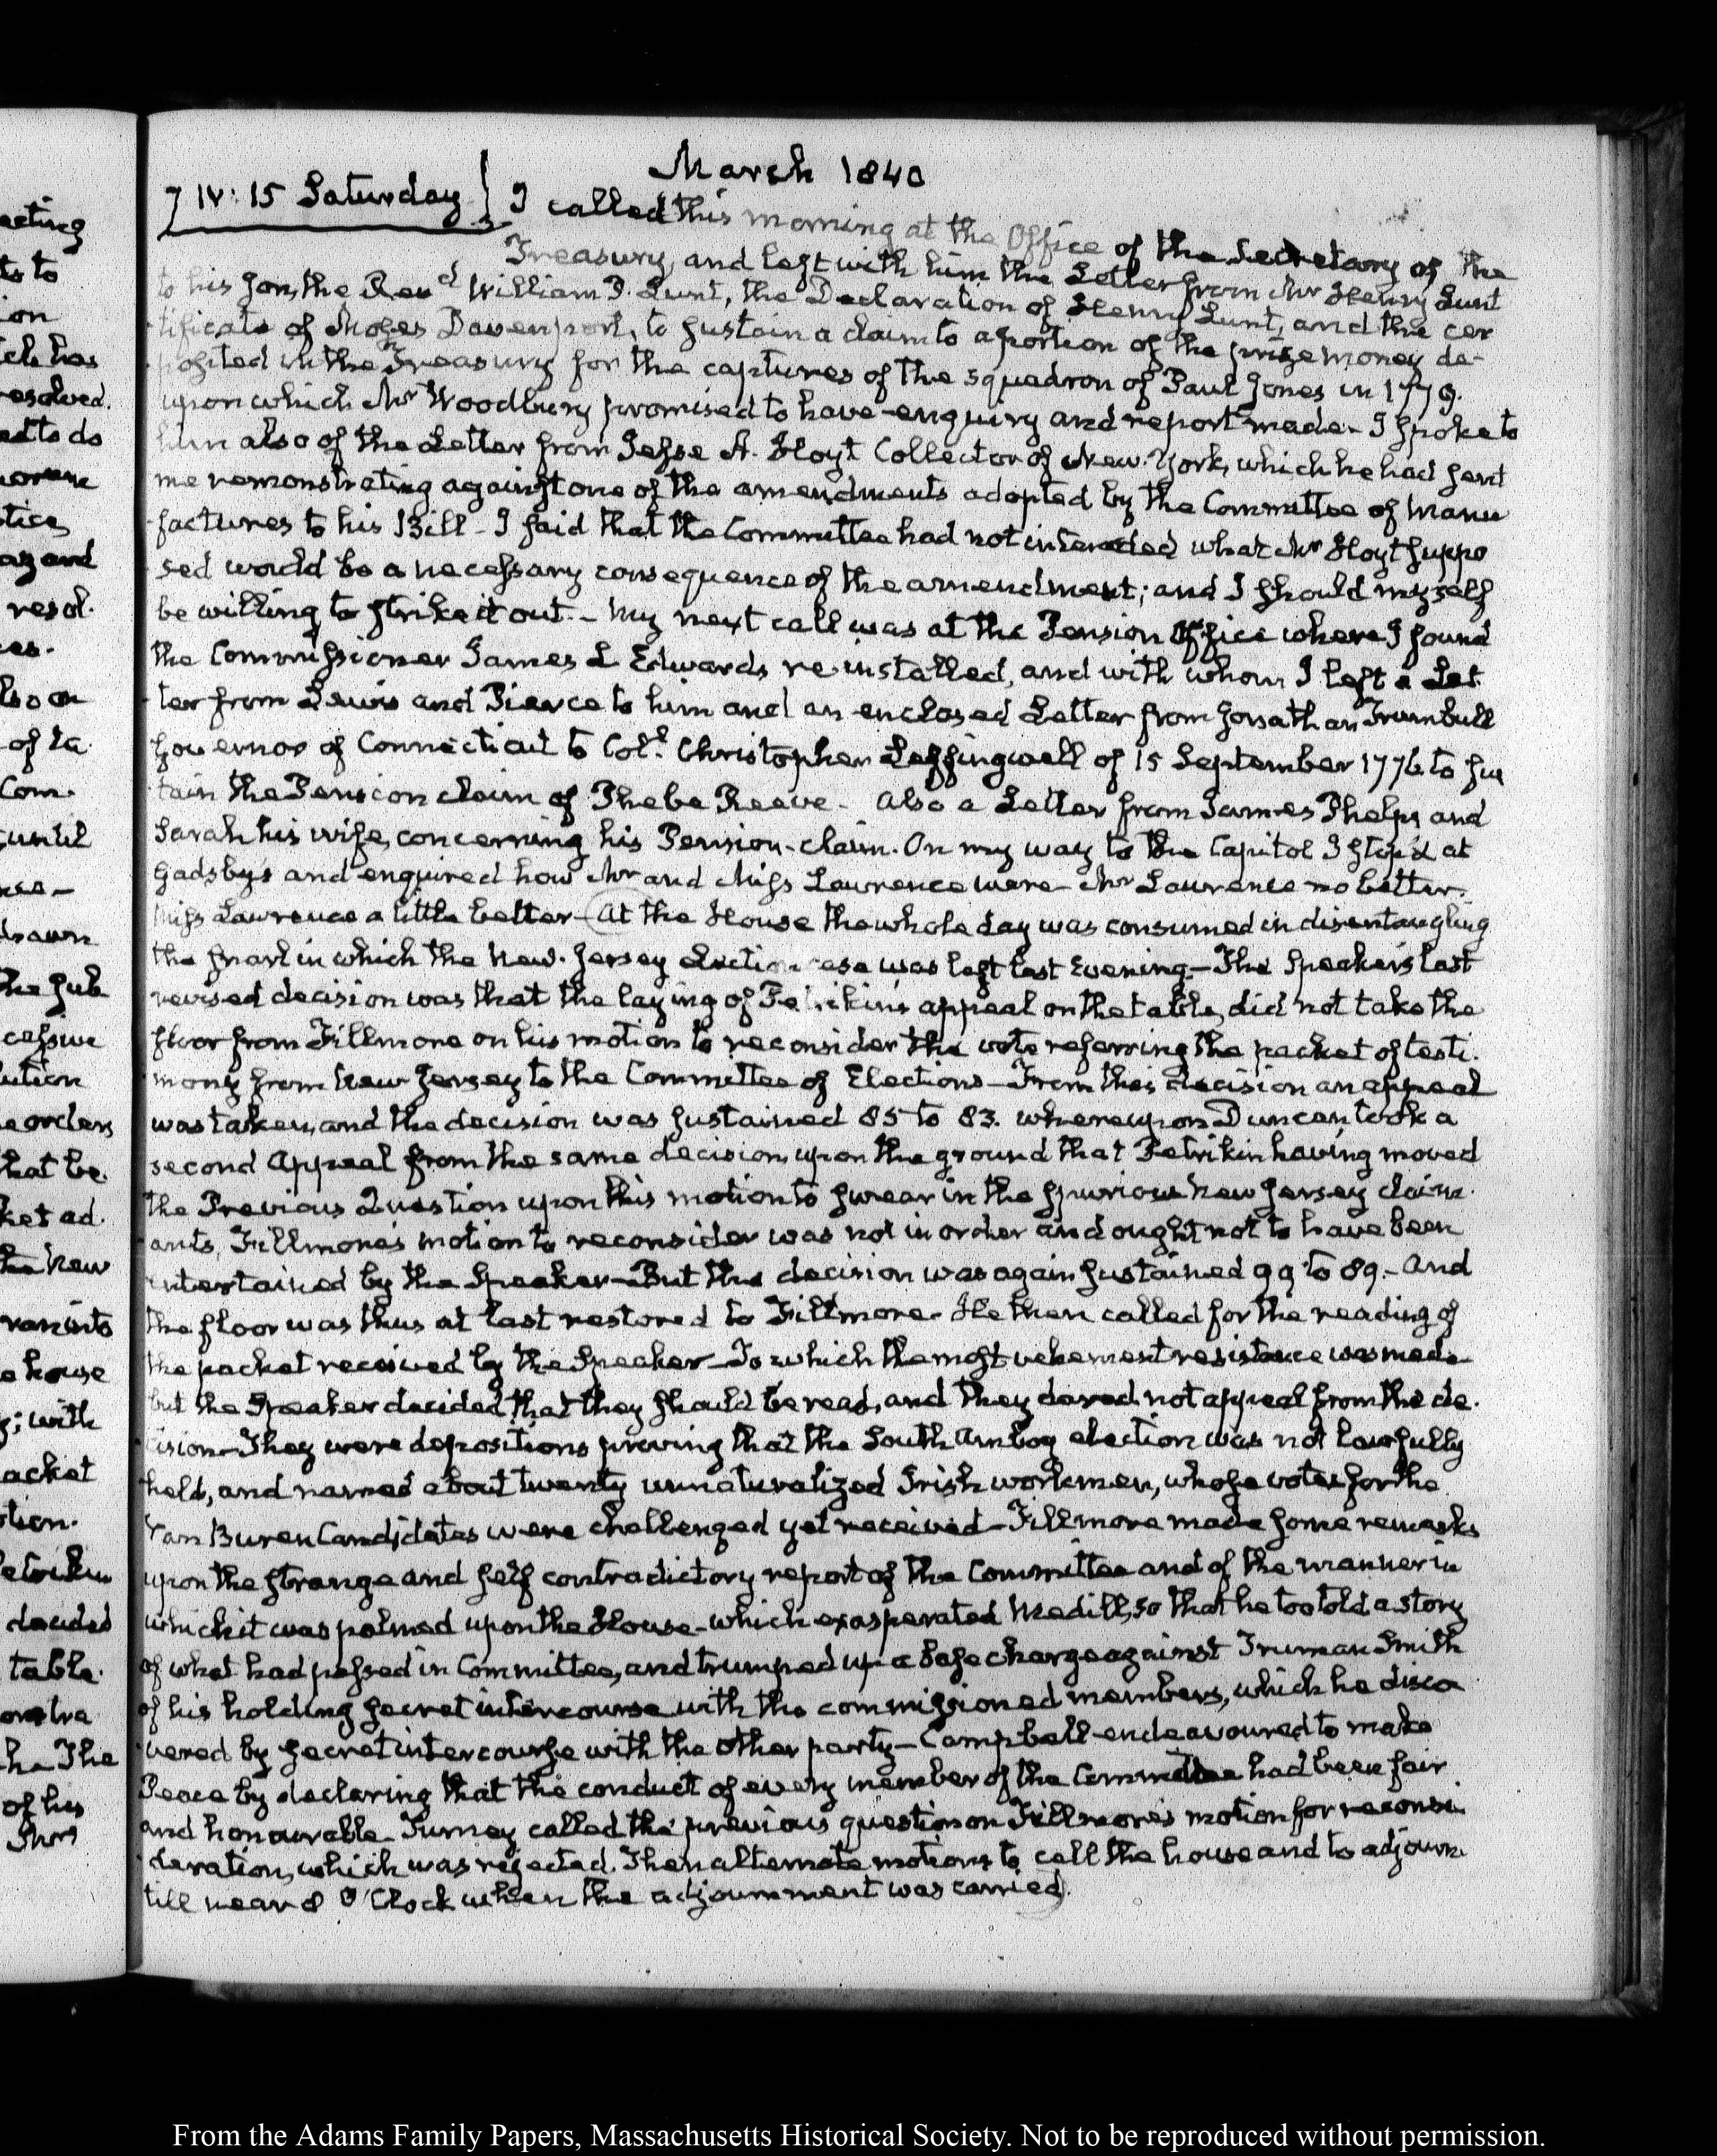 March 1840
7 IV: 15 Saturday } I called this morning at the Office of the Secretary of the
Treasury, and left with him the Letter from Mr Henry Lunt
to his Son, the Revd William P. Lunt, the Declaration of Henry Lunt, and the cer
tificate of Moses Davenport, to sustain a claim to a portion of the prize money de-
posited in the Treasury for the captures of the squadron of Paul Jones in 1779.
upon which Mr Woodbury promised to have enquiry and report made- I spoke to
him also of the Letter from Jesse A. Hoyt Collector of New-York, which he had sent
me remonstrating against one of the amendments adopted by the Committee of Manu
factures to his Bill- I said that the Committee had not intended what Mr Hoyt suppo
sed would be a necessary consequence of the amendment; and I should myself
be willing to strike it out.- My next call was at the Pension Office where I found
the Commissioner James L Edwards re-installed, and with whom I left a Let
ter from Lewis and Pierce to him and an enclosed Letter from Jonathan Trumbull
Governor of Connecticut to Coll. Christopher Leffingwell of 15 September 1776 to sus
tain the Pension claim of Phebe Reeve- Also a Letter from James Phelps and
Sarah his wife, concerning his Pension-claim. On my way to the Capitol I stop'd at
Gadsby's and enquired how Mr and Miss Lawrence were- Mr Lawrence no better.
Miss Lawrence a little better- (At the House the whole day was consumed in disentangling
the snarl in which the New-Jersey election case was left last Evening- The Speaker's last
revised decision was that the laying of Petrikin's appeal on the table, did not take the
floor from Fillmore on his motion to reconsider the vote referring the packet of testi-
mony from New Jersey to the Committee of Elections- From this decision an appeal
was taken, and the decision was sustained 85 to 83. whereupon Duncan took a
second Appeal from the same decision, upon the ground that Petrikin having moved
the Previous Question upon his motion to swear in the spurious New Jersey claim-
ants, Fillmore's motion to reconsider was not in order and ought not to have been
entertained by the Speaker- But the decision was again sustained 99 to 89.- And
the floor was thus at last restored to Fillmore- He then called for the reading of
the packet received by the Speaker- To which the most vehement resistance was made
but the Speaker decided that they should be read, and they dared not appeal from the de-
cision- They were depositions proving that the South Amboy election was not lawfully
held, and named about twenty unnaturalized Irish workmen, whose votes for the
Van Buren Candidates were challenged yet received- Fillmore made some remarks
upon the strange and self contradictory report of the Committee and of the manner in
which it was palmed upon the House- which exasperated Medill, so that he too told a story
of what had passed in Committee, and trumped up a base charge against Truman Smith
of his holding secret intercourse with the commissioned members, which he disco
vered by secret intercourse with the other party- Campbell endeavoured to make
Peace by declaring that the conduct of every member of the Committee had been fair
and honourable- Turney called the previous question on Fillmore's motion for reconsi-
deration, which was rejected. Then alternate motions to call the house and to adjourn
till near 8 O'Clock when the adjournment was carried).
From the Adams Family Papers, Massachusetts Historical Society. Not to be reproduced without permission.